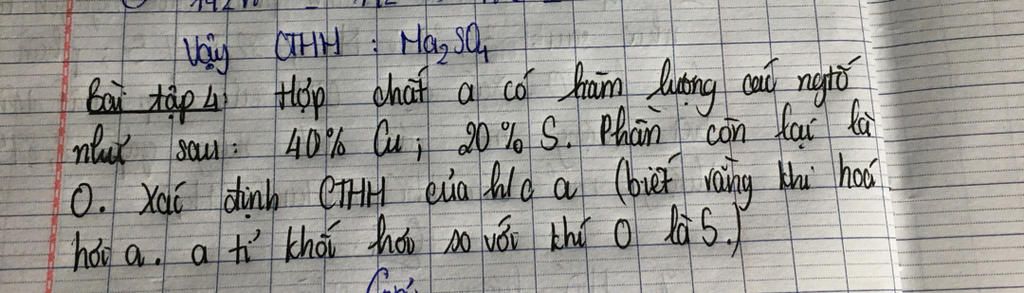 Vậy CTHH : Na₂SO₄
Bài tập 4: Hợp chất a có hàm lượng các ngtố
như sau: 40% Cu; 20% S. Phần còn lại là
O. Xác định CTHH của h/c a (biết rằng khi hoá
hơi a. a tỉ khối hơi so với khí O là 5.)